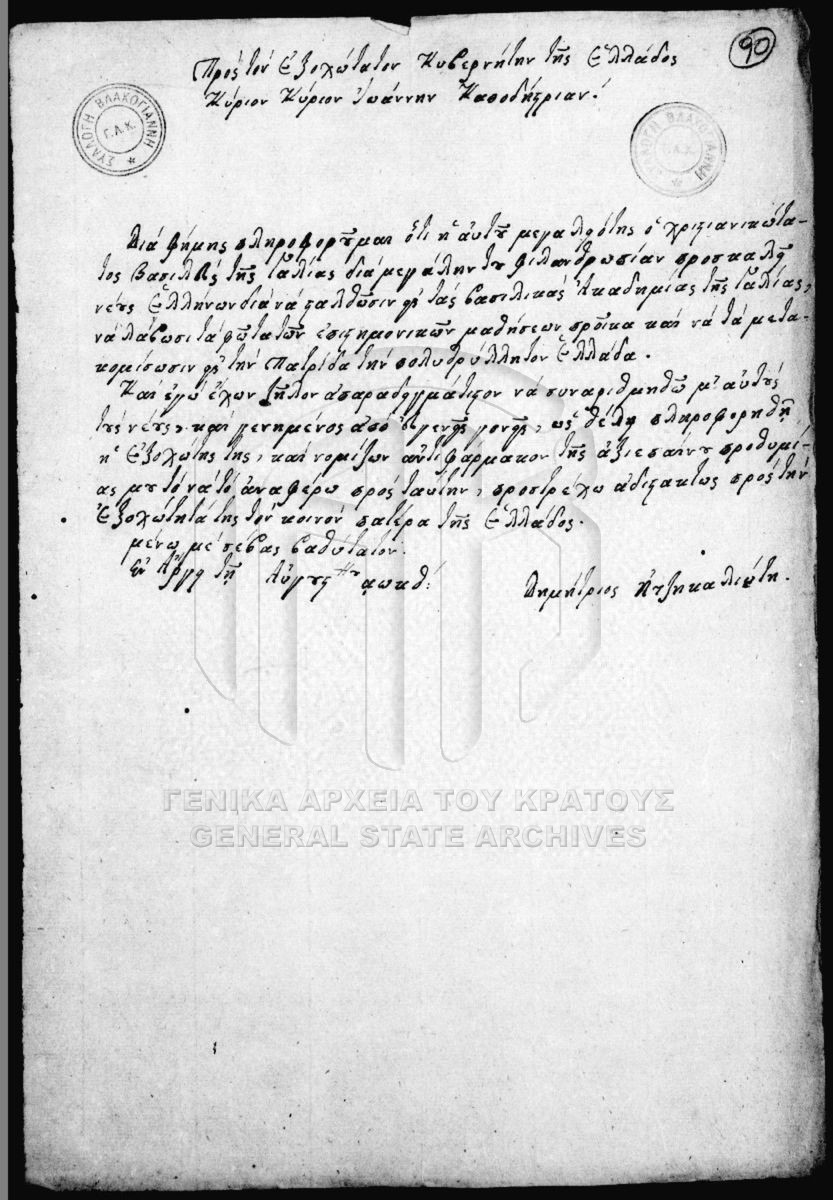 90
Πρὸς τὸν Ἐξοχώτατον Κυβερνήτην τῆς Ἑλλάδος
Κύριον Κύριον Ἰωάννην Καποδίστριαν!
ΣΥΛΛΟΓΗ ΒΛΑΧΟΓΙΑΝΝΗ Γ.Α.Κ.
ΣΥΛΛΟΓΗ ΒΛΑΧΟΓΙΑΝΝΗ Γ.Α.Κ.
Διὰ φήμης πληροφοροῦμαι ὅτι ἡ αὐτοῦ μεγαλειότης ὁ χριστιανικώτα-
τος Βασιλεὺς τῆς Γαλλίας διὰ μεγάλην του φιλανθρωπίαν προσκαλεῖ
νέους Ἑλλήνων διὰ νὰ σταλθῶσιν εἰς τὰς βασιλικὰς Ἀκαδημίας τῆς Γαλλίας,
νὰ λάβωσι τὰ φῶτα τῶν ἐπιστημονικῶν μαθήσεων προῖκα καὶ νὰ τὰ μετα-
κομίσωσιν εἰς τὴν Πατρίδα τὴν πολυθρύλλητον Ἑλλάδα.
Καὶ ἐγὼ ἔχων ζῆλον ἀπαραδειγμάτιστον νὰ συναριθμηθῶ μ' αὐτοὺς
τοὺς νέους, καὶ γενημένος ἀπὸ εὐγενεῖς γονεῖς, ὡς θέλει πληροφορηθῆ
ἡ Ἐξοχώτης της, καὶ νομίζων ἀντιφάρμακον τῆς ἀξιεπαίνου προθυμί-
ας μου τὸ νὰ τὸ ἀναφέρω πρὸς ταύτην, προστρέχω ἀδιστάκτως πρὸς τὴν
Ἐξοχώτητά της τὸν κοινὸν πατέρα τῆς Ἑλλάδος.
μένω μὲ σέβας βαθύτατον.
Ἐν Ἄργει τῇ Αὐγούστου αωκθ!
Δημήτριος
ΓΕΝΙΚΑ ΑΡΧΕΙΑ ΤΟΥ ΚΡΑΤΟΥΣ
GENERAL STATE ARCHIVES